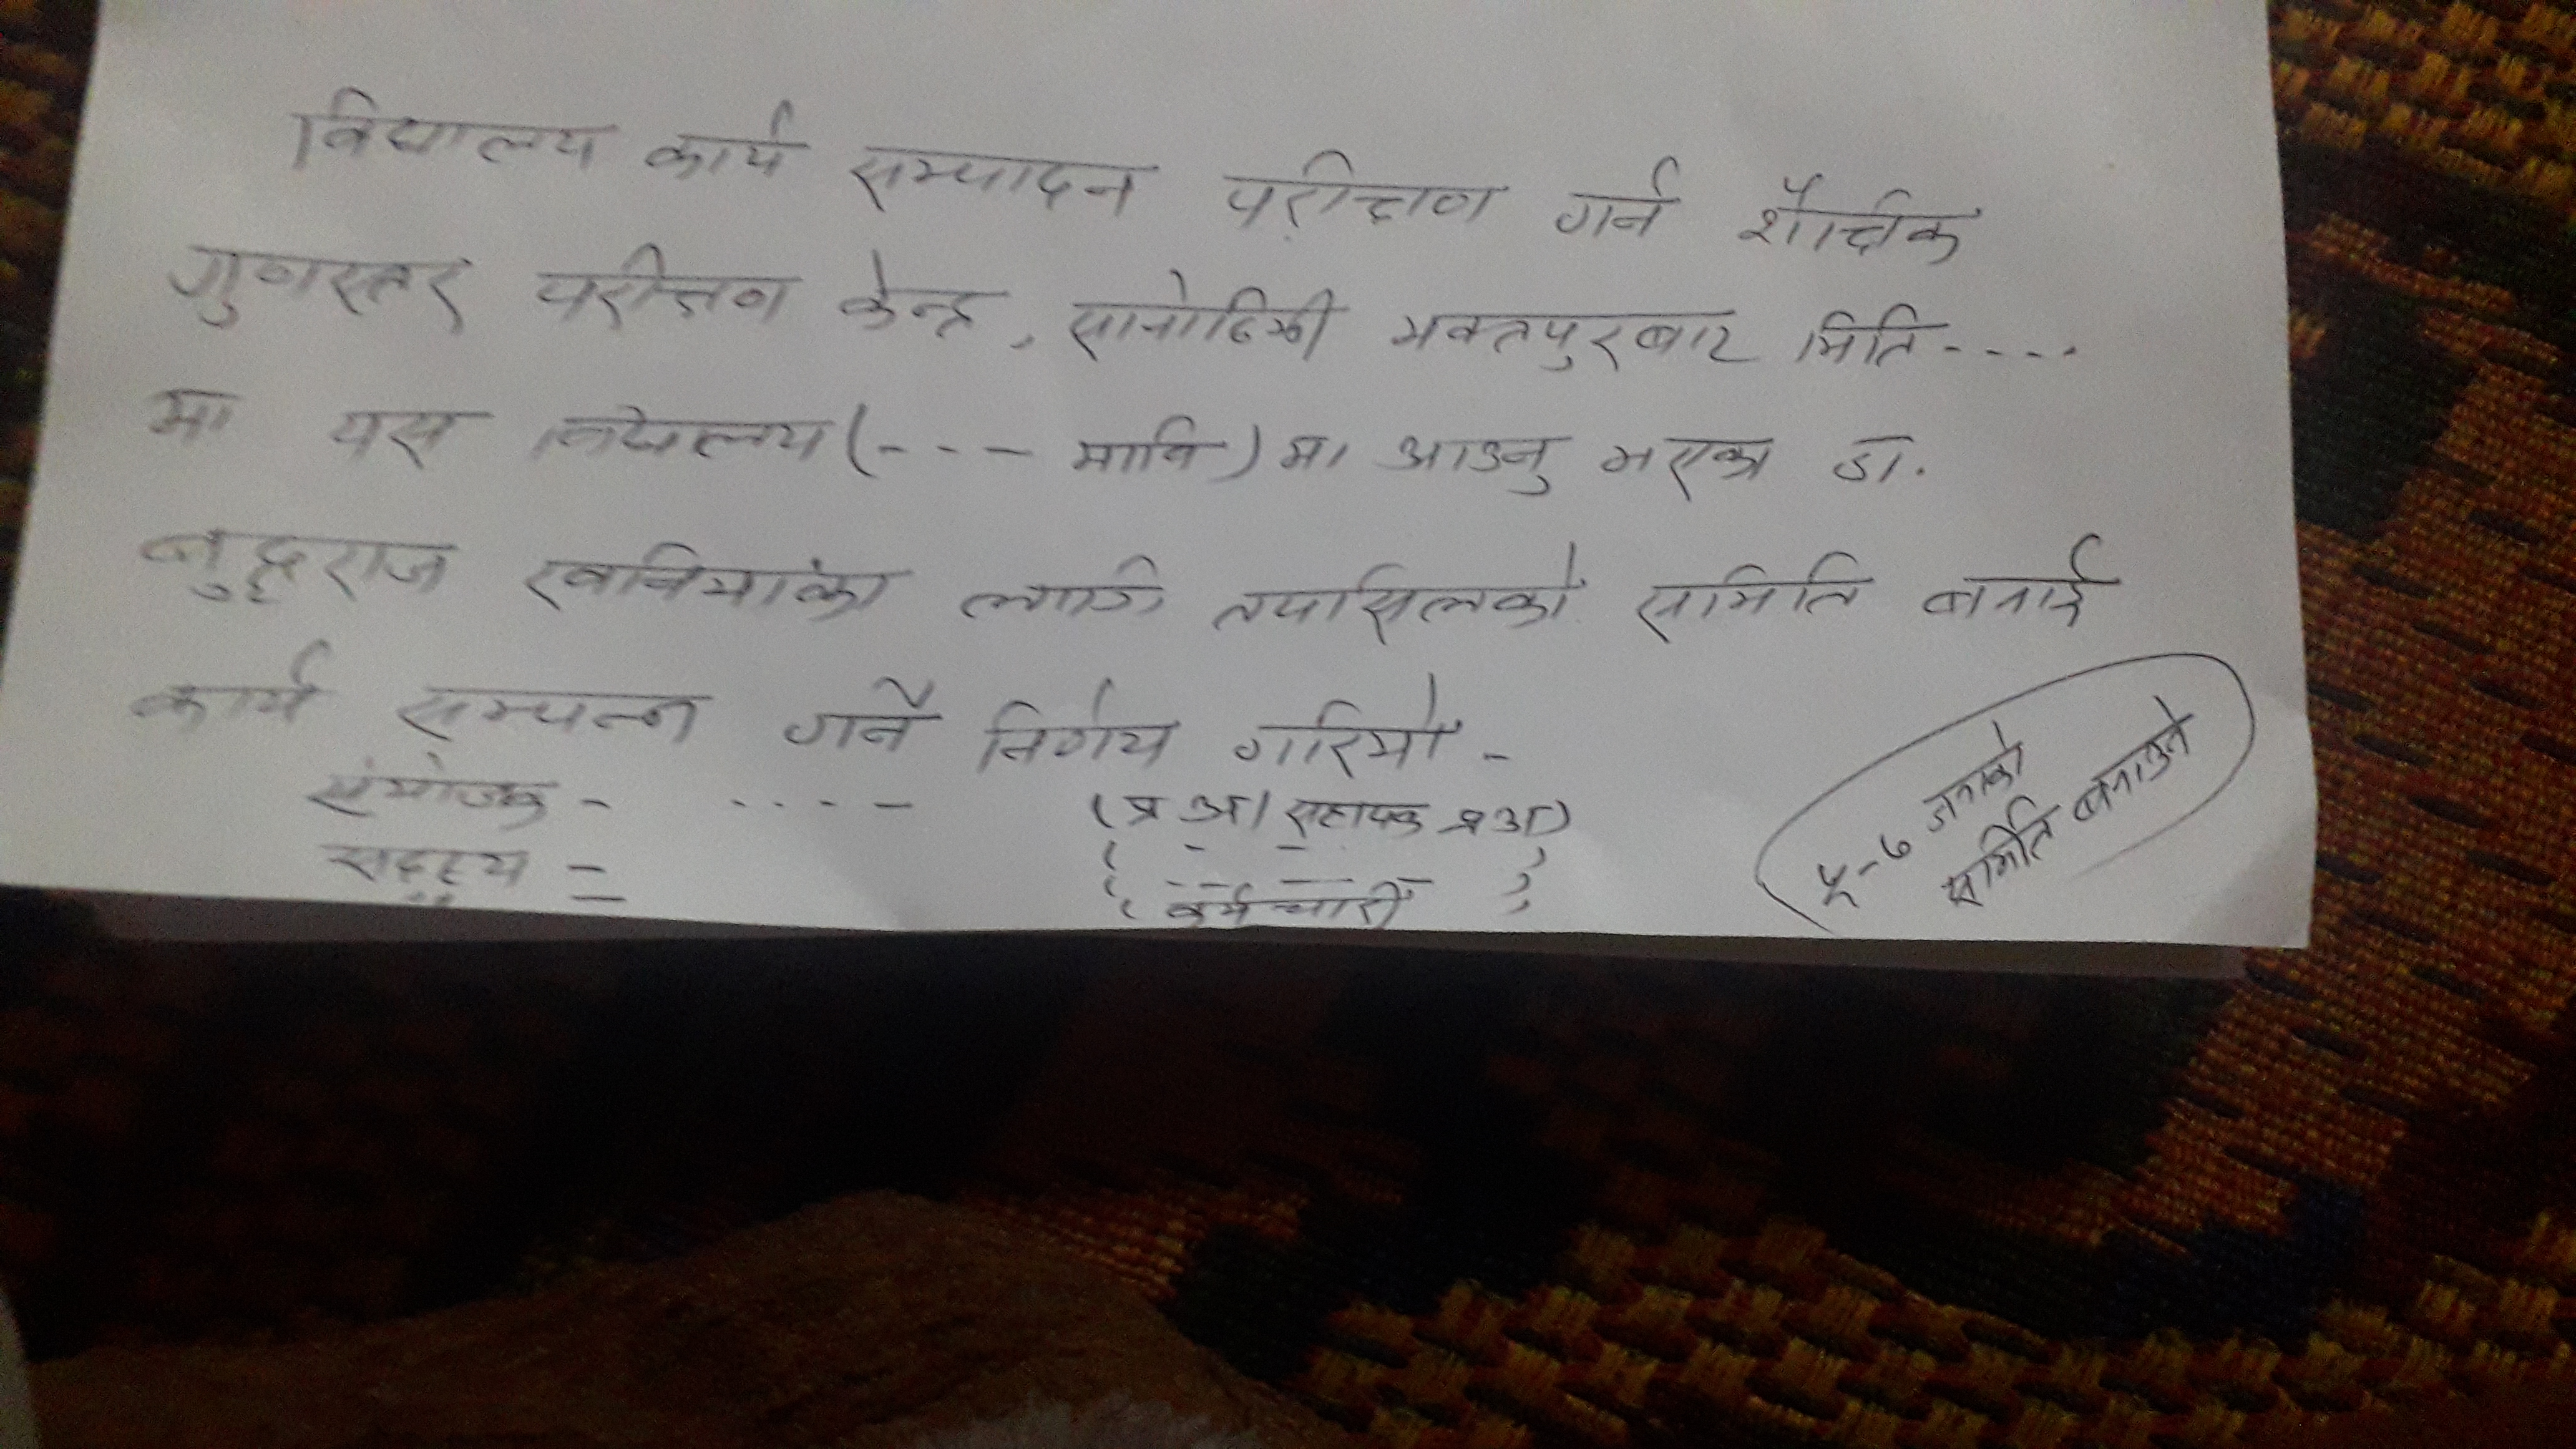 विद्यालय कार्य सम्पादन परीक्षण गर्न शैक्षिक
गुणस्तर परीक्षण केन्द्र, सानोठिमी भक्तपुरबाट मिति-....
मा यस विद्यालय (--- मावि) मा आउनु भएका डा.
बुद्धराज खनियाँका लागि तपासिलको समिति बनाई
कार्य सम्पन्न गर्ने निर्णय गरियो -
संयोजक - .... - (प्र अ/ सहायक प्र अ)
सदस्य = ( - - )
" = ( -- -- - )
( कर्मचारी )
५-७ जनाको
समिति बनाउने